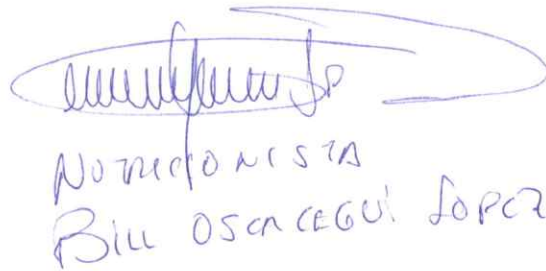 NUTRICIONISTA
Bill OSCACEGUI LOPEZ